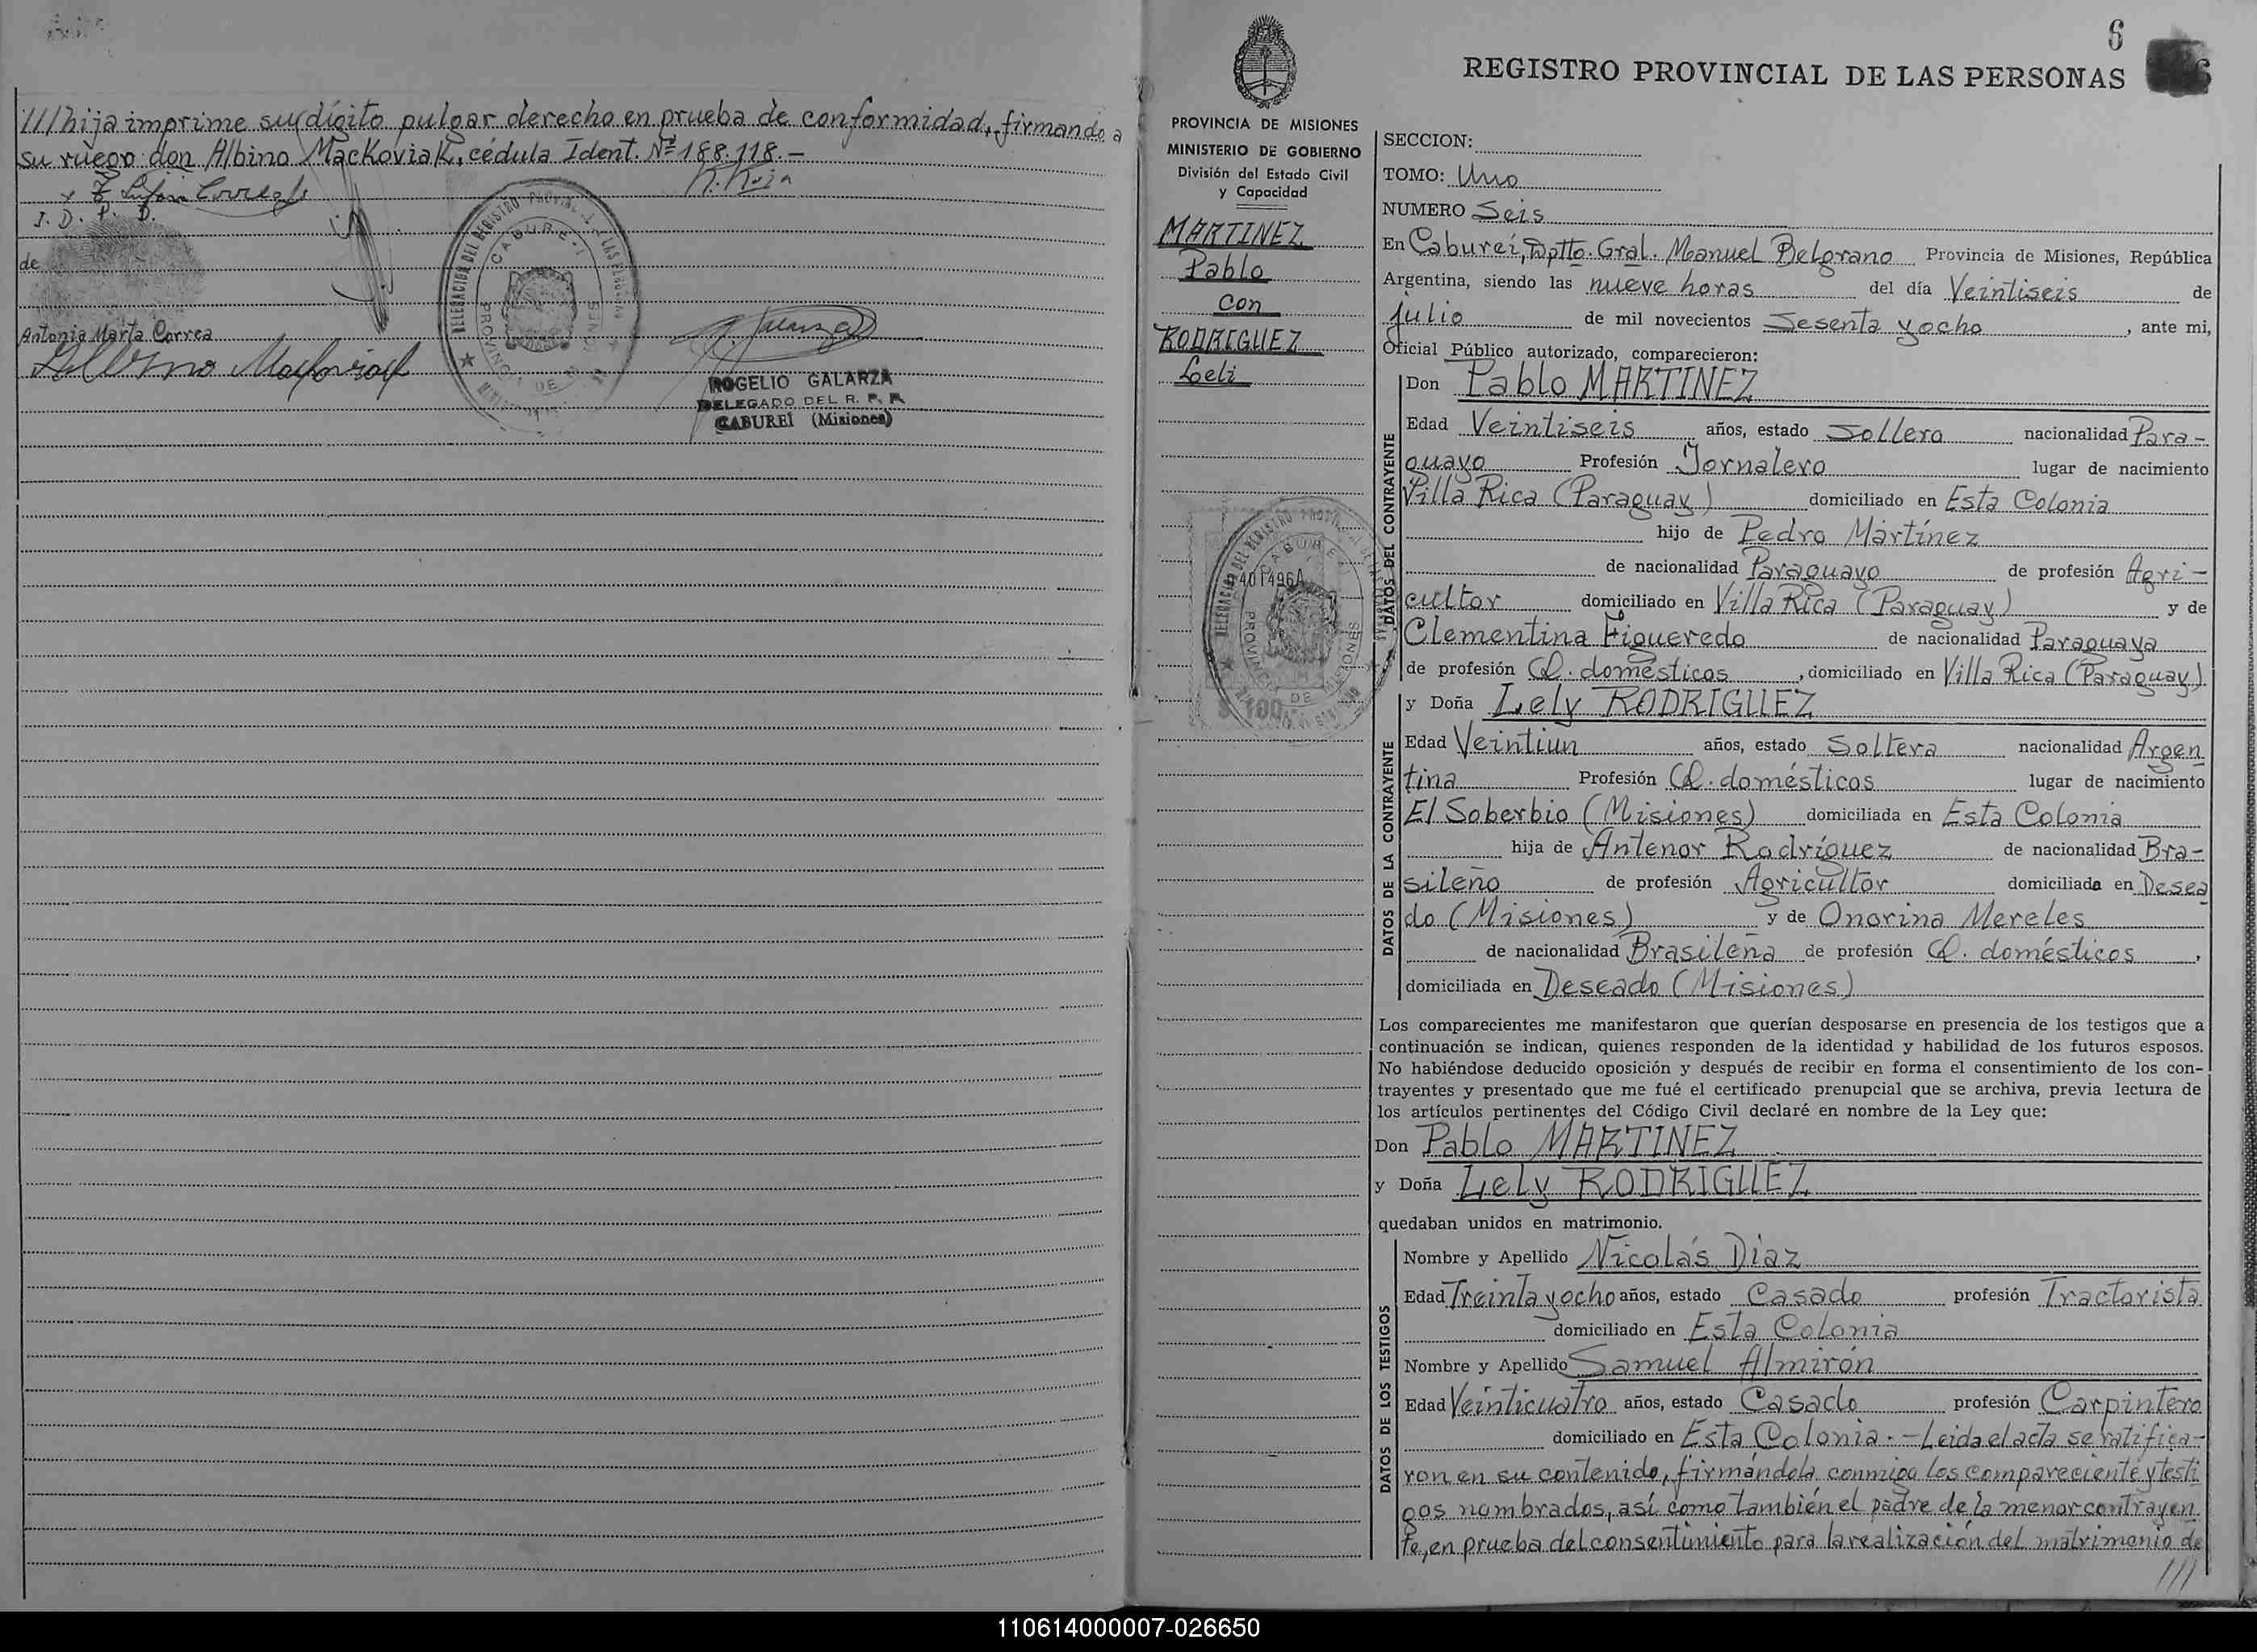 ///hija imprime su dígito pulgar derecho en prueba de conformidad, firmando a
su ruego don Albino Mackoviak, cédula Ident. Nº 188.118.-
I. D. P. D.
de
Antonia Marta Correa
DELEGACION DEL REGISTRO PROVINCIAL DE LAS PERSONAS
CABURE-I
PROVINCIA DE MISIONES
ROGELIO GALARZA
DELEGADO DEL R. P. P.
CABUREÍ (Misiones)
6
REGISTRO PROVINCIAL DE LAS PERSONAS
PROVINCIA DE MISIONES
MINISTERIO DE GOBIERNO
División del Estado Civil
y Capacidad
MARTINEZ
Pablo
con
RODRIGUEZ
Leli
401496A
$ 100
SECCION:
TOMO: Uno
NUMERO Seis
En Cabureí, Dptto. Gral. Manuel Belgrano Provincia de Misiones, República
Argentina, siendo las nueve horas del día Veintiseis de
julio de mil novecientos Sesenta y ocho, ante mi,
Oficial Público autorizado, comparecieron:
DATOS DEL CONTRAYENTE
Don Pablo MARTINEZ
Edad Veintiseis años, estado Soltero nacionalidad Para-
guayo Profesión Jornalero lugar de nacimiento
Villa Rica (Paraguay) domiciliado en Esta Colonia
hijo de Pedro Martínez
de nacionalidad Paraguayo de profesión Agri-
cultor domiciliado en Villa Rica (Paraguay) y de
Clementina Figueredo de nacionalidad Paraguaya
de profesión Q. domésticos, domiciliado en Villa Rica (Paraguay)
y Doña Lely RODRIGUEZ
DATOS DE LA CONTRAYENTE
Edad Veintiun años, estado Soltera nacionalidad Argen
tina Profesión Q. domésticos lugar de nacimiento
El Soberbio (Misiones) domiciliada en Esta Colonia
hija de Antenor Rodríguez de nacionalidad Bra-
sileño de profesión Agricultor domiciliada en Desea
do (Misiones) y de Onorina Mereles
de nacionalidad Brasileña de profesión Q. domésticos,
domiciliada en Deseado (Misiones)
Los comparecientes me manifestaron que querían desposarse en presencia de los testigos que a
continuación se indican, quienes responden de la identidad y habilidad de los futuros esposos.
No habiéndose deducido oposición y después de recibir en forma el consentimiento de los con-
trayentes y presentado que me fué el certificado prenupcial que se archiva, previa lectura de
los artículos pertinentes del Código Civil declaré en nombre de la Ley que:
Don Pablo MARTINEZ
y Doña Lely RODRIGUEZ
quedaban unidos en matrimonio.
DATOS DE LOS TESTIGOS
Nombre y Apellido Nicolás Diaz
Edad Treinta y ocho años, estado Casado profesión Tractorista
domiciliado en Esta Colonia
Nombre y Apellido Samuel Almirón
Edad Veinticuatro años, estado Casado profesión Carpintero
domiciliado en Esta Colonia.-Leida el acta se ratifica-
ron en su contenido, firmándola conmigo los compareciente y testi
gos nombrados, así como también el padre de la menor contrayen
te, en prueba del consentimiento para la realización del matrimonio de
///
110614000007-026650